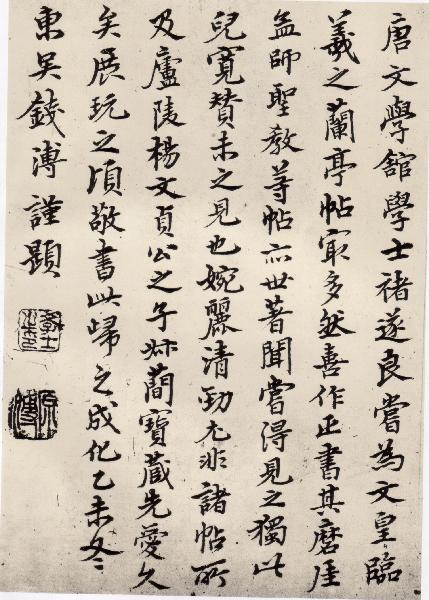 唐文學舘學士褚遂良嘗為文皇臨
羲之蘭亭帖㝡多然善作正書其磨崖
孟師聖教等帖亦世著聞嘗得見之獨此
兒寬賛未之見也婉麗清勁尤非諸帖所
及廬陵楊文貞公之子叔蕳寶藏先愛久
矣展玩之頃敬書此歸之成化乙未冬
東吴錢溥謹題